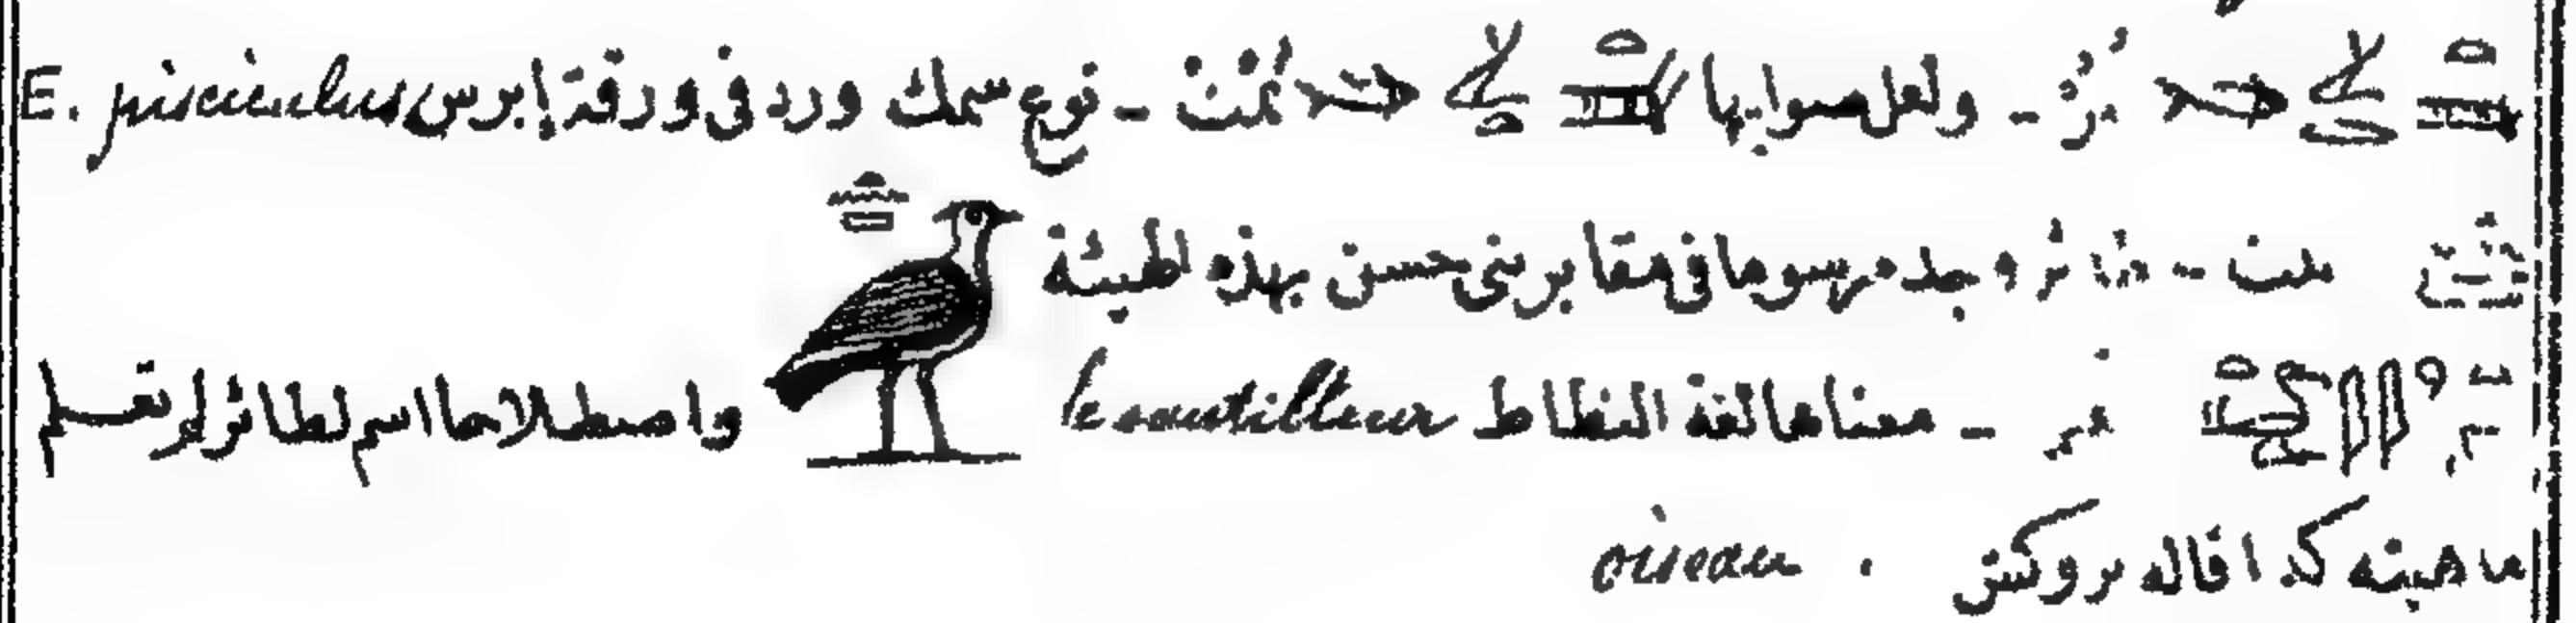 ـ ولعل صوابها ـ نوع سمك ورد فى ورقة إبرس E. pisciculus
ـ طائر وجد مرسوما فى مقابر بنى حسن بهذه الهيئة
ـ معناها لغة النطاط le sautilleur واصطلاحا اسم لطائر لم تعلم
ما هيته كذا قاله بروكش . oiseau